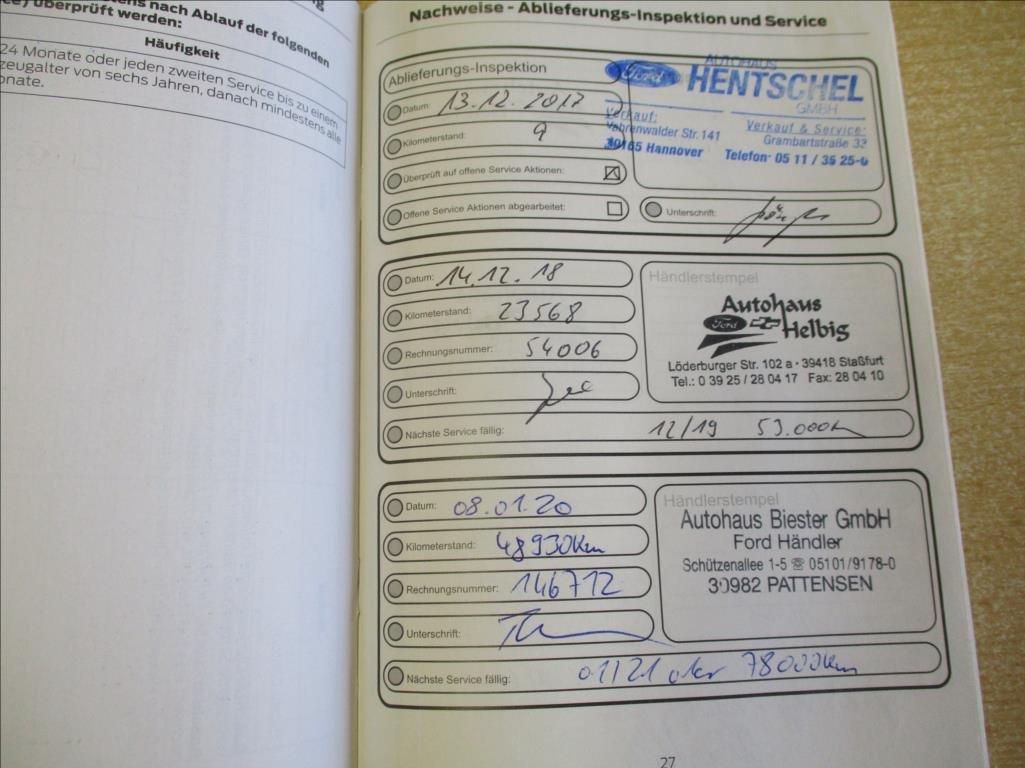 tens nach Ablauf der folgenden
ce) überprüft werden:
Häufigkeit
24 Monate oder jeden zweiten Service bis zu einem
zeugalter von sechs Jahren, danach mindestens alle
onate.
Nachweise - Ablieferungs-Inspektion und Service
Ablieferungs-Inspektion
Datum: 13.12.2017
Kilometerstand: 9
Überprüft auf offene Service Aktionen:
Offene Service Aktionen abgearbeitet:
AUTOHAUS
Ford HENTSCHEL
GMBH
Verkauf: Verkauf & Service:
Vahrenwalder Str. 141 Grambartstraße 32
30165 Hannover Telefon 05 11 / 35 25-0
Unterschrift:
Datum: 14.12.18
Kilometerstand: 23568
Rechnungsnummer: 54006
Unterschrift:
Nächste Service fällig: 12/19 53.000km
Händlerstempel
Autohaus
Ford Helbig
Löderburger Str. 102 a · 39418 Staßfurt
Tel.: 0 39 25 / 28 04 17 Fax: 28 04 10
Datum: 08.01.20
Kilometerstand: 48930km
Rechnungsnummer: 146712
Unterschrift:
Nächste Service fällig: 01/21 oder 78000km
Händlerstempel
Autohaus Biester GmbH
Ford Händler
Schützenallee 1-5 ☏ 05101/9178-0
30982 PATTENSEN
27